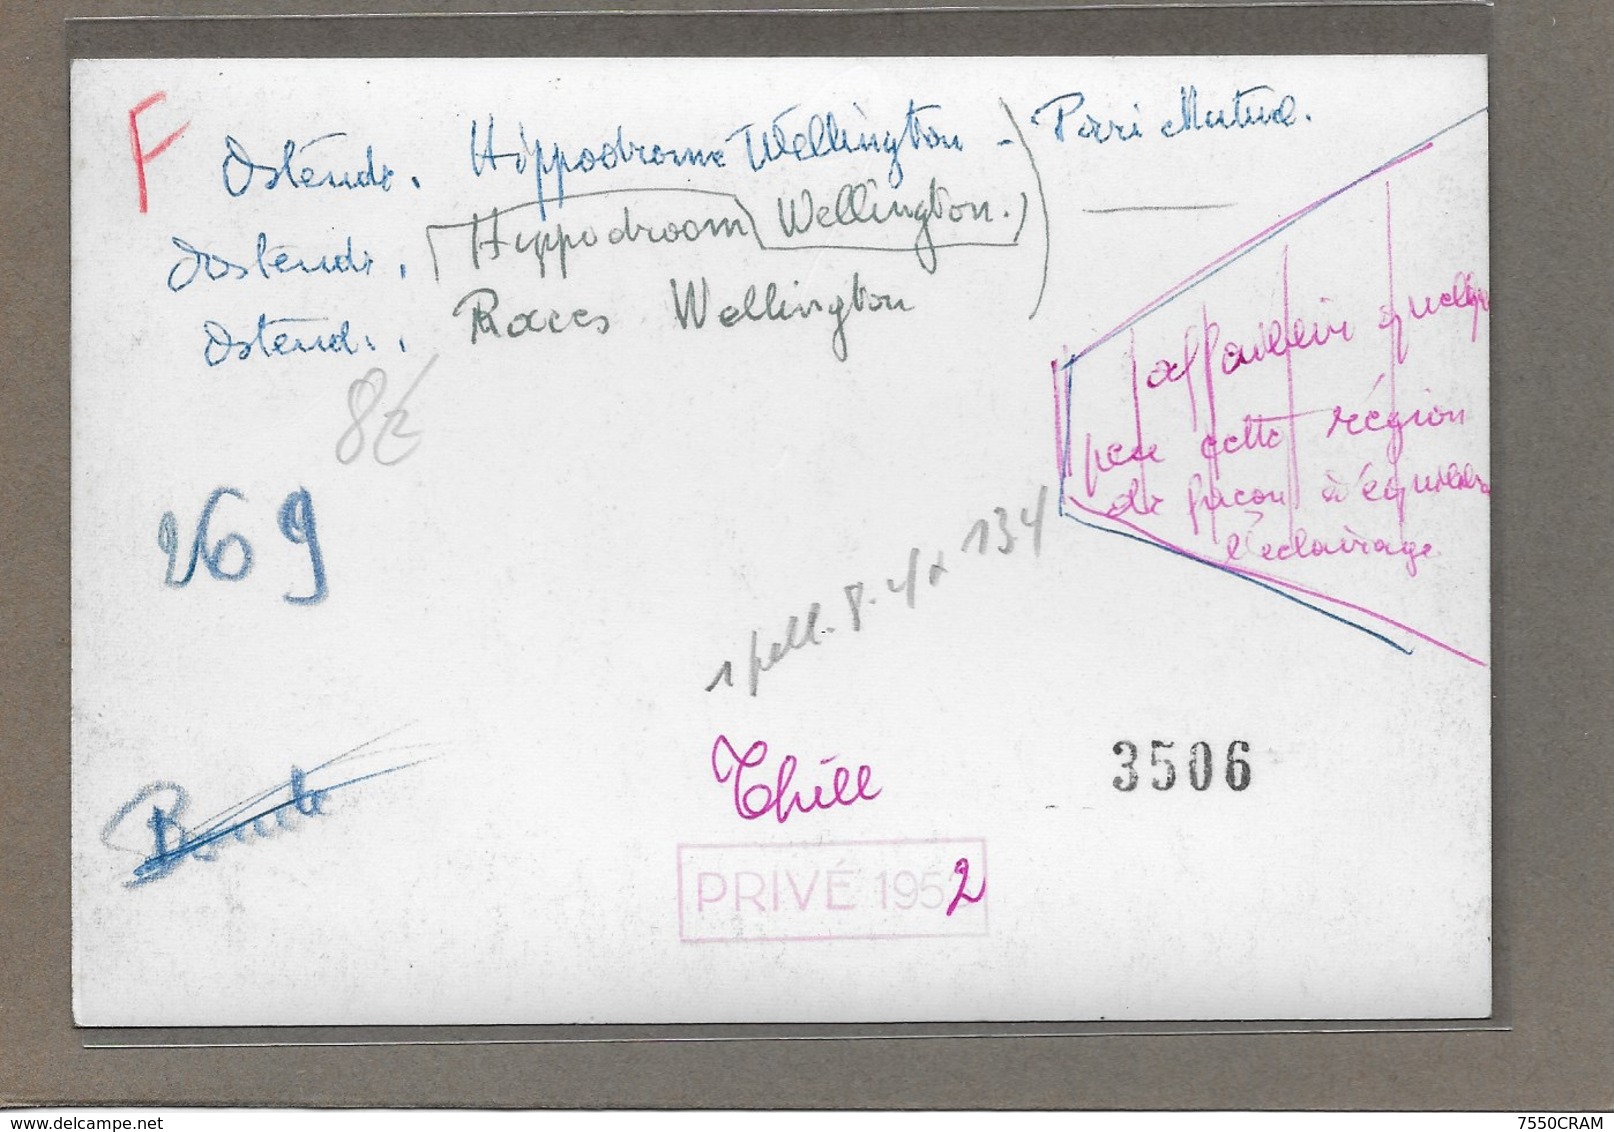 F
Ostende. Hippodrome Wellington - Pari Mutuel.
Oostende. (Hippodroom Wellington.)
Ostend. Races Wellington
8
affaiblir quelque
peu cette région
de façon à équilibrer
l'éclairage.
269
1 pell. 8.4 x 134
Thill
3506
PRIVÉ 1952
www.delcampe.net
7550CRAM